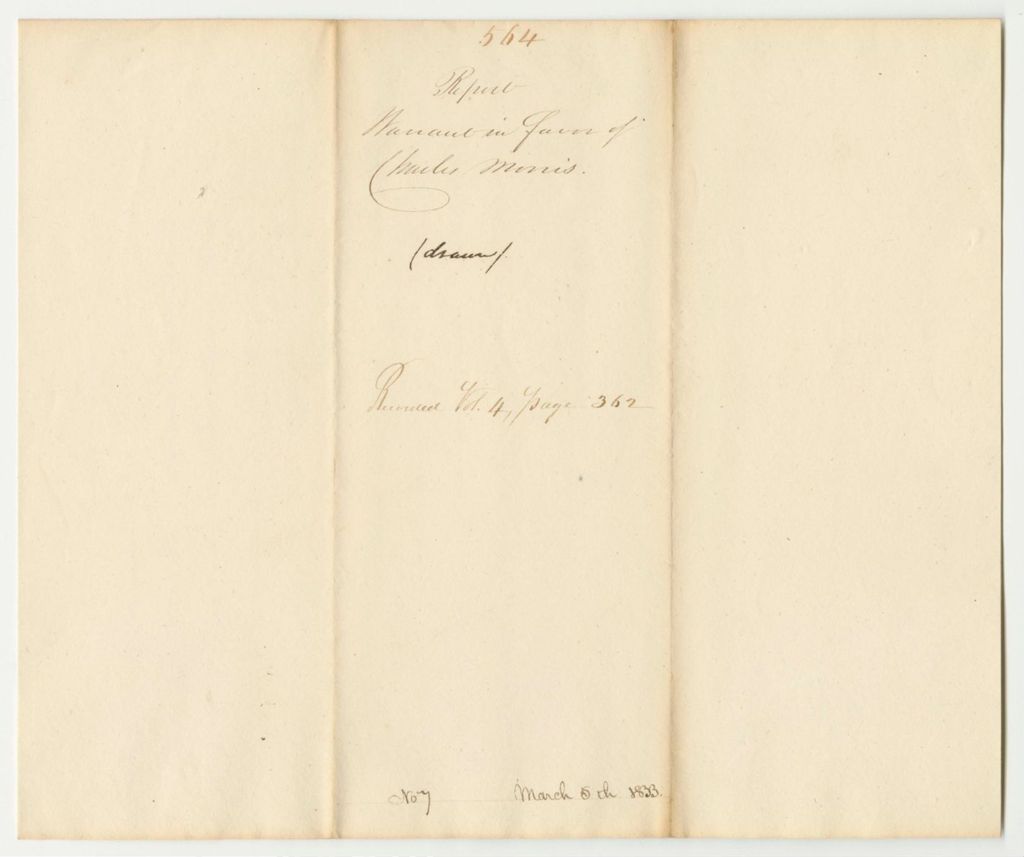 564
Report
Warrant in favor of
Charles Morris.
(drawn)
Recorded Vol. 4, page 362
No 7 March 5th 1833.